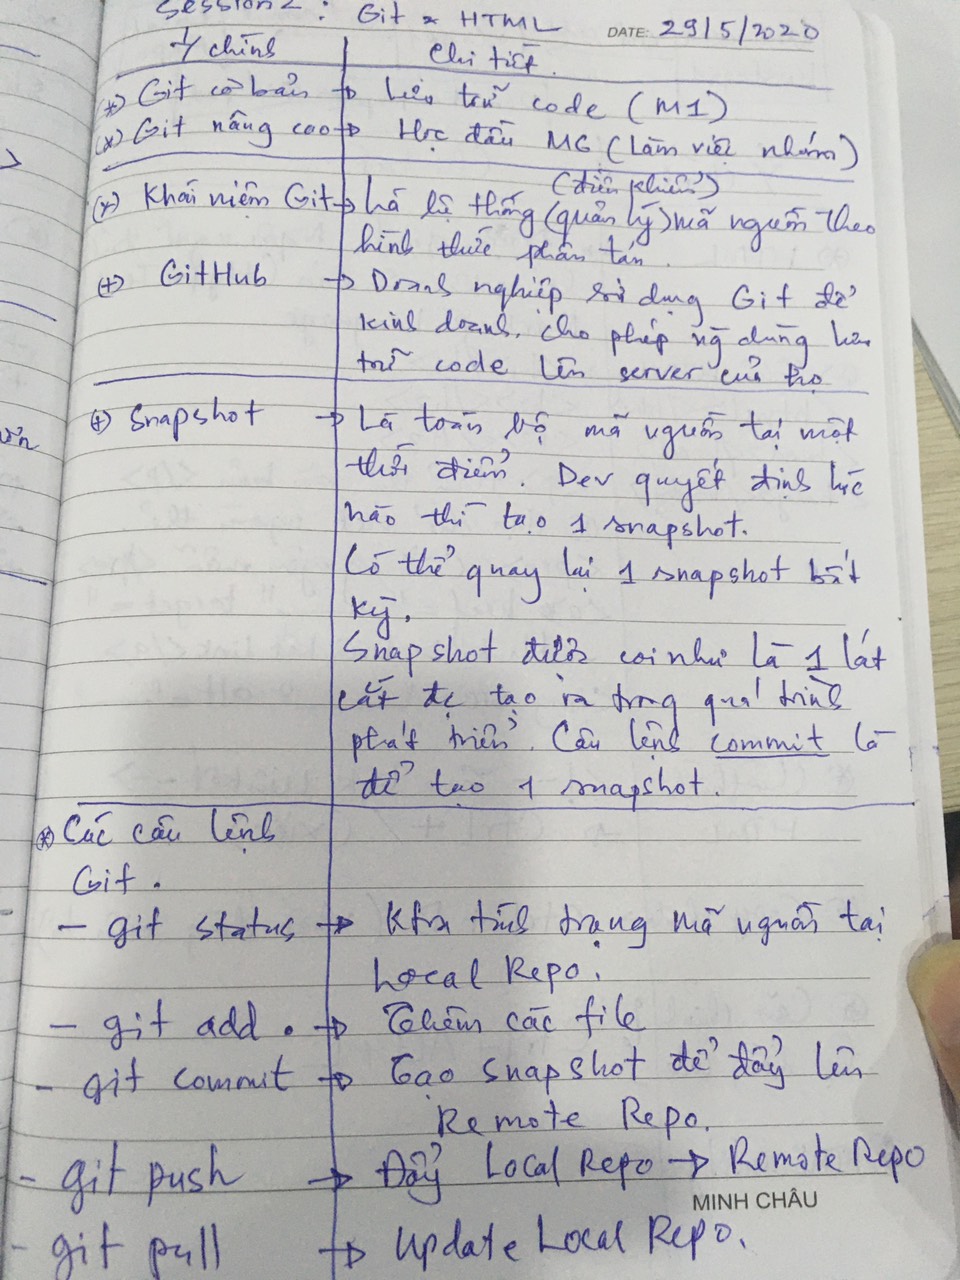 Session 2 : Git & HTML DATE: 29/5/2020
Ý chính Chi tiết.
(*) Git cơ bản → Lưu trữ code (M1)
(*) Git nâng cao → Học đầu M6 (Làm việc nhóm)
(điều khiển)
(*) Khái niệm Git → Là hệ thống (quản lý) mã nguồn theo
hình thức phân tán.
(+) GitHub → Doanh nghiệp sử dụng Git để
kinh doanh, cho phép ng dùng lưu
trữ code lên server của họ
(+) Snapshot → Là toàn bộ mã nguồn tại một
thời điểm. Dev quyết định lúc
nào thì tạo 1 snapshot.
Có thể quay lại 1 snapshot bất
kỳ.
Snapshot được coi như là 1 lát
cắt đc tạo ra trong quá trình
phát triển. Câu lệnh commit là
để tạo 1 snapshot.
(*) Các câu lệnh
Git.
- git status → Ktra tình trạng mã nguồn tại
Local Repo.
- git add . → Thêm các file
- git commit → Tạo snapshot để đẩy lên
Remote Repo.
- git push → Đẩy Local Repo → Remote Repo
MINH CHÂU
- git pull → Update Local Repo.